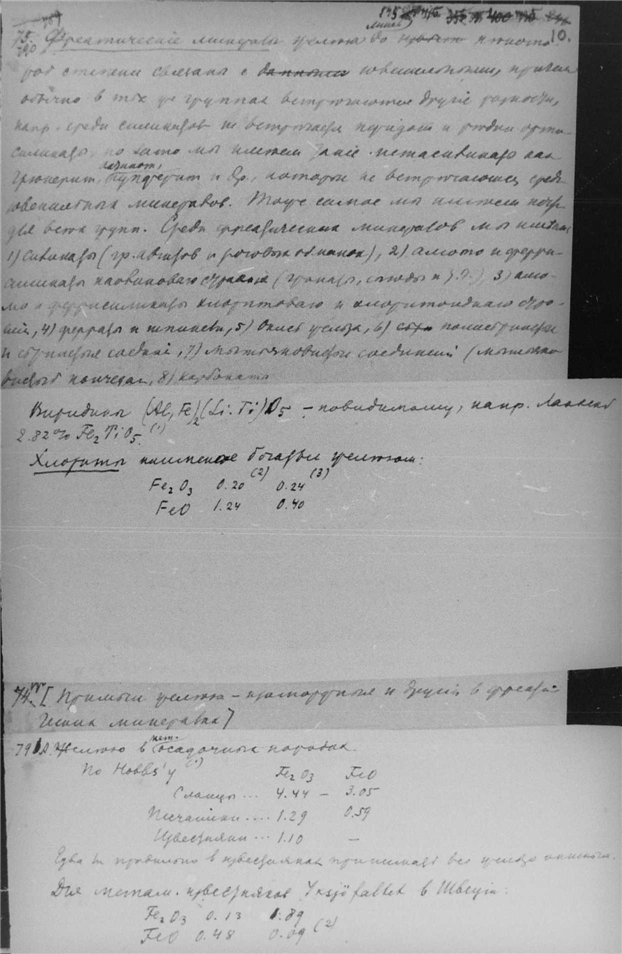 10.
75. Фреатические минералы железа до некото-
рой степени связаны с ювенильными, причем
обычно в тех же группах встречаются другие
напр. среди силикатов не встречаем перидота и орто-
силикаты, но зато мы имеем такие метасиликаты как
грюнерит, и др., которые не встречаются среди
ювенильных минералов. Тоже самое мы имеем и
для всех групп. Среди фреатических минералов мы имеем
1) Силикаты (гр. авгитов и роговых обманок), 2) алюмо и ферри-
силикаты каолинового строения (гранаты, слюды и т.д.), 3) алю-
мо и феррисиликаты хлоритового и хлоритоидного стро-
ения, 4) ферраты и шпинели, 5) Окись железа, 6)
и сернистые соедин., 7) мышьяковистые соединения (мышьяко-
вистый колчедан, 8) Карбонаты
Виридины (Al, Fe)2 (Si.Ti) O5 – повидимому, напр.
2.82% Fe2 TiO5 (1)
Хлориты наименее богатые железом:
(2) (3)
Fe2O3 0.20 0.24
FeO 1.24 0.40
74. [Примеси железа – изоморфные и другие в фреати-
ческих минералах]
79 Железо в мет. осадочных породах
По Hobbs'у (1) Fe2O3 FeO
Сланцы ... 4.44 – 3.05
Песчаники .... 1.29 0.59
Известняки ... 1.10 –
Едва ли правильно в известняках принимать все железо окисным.
Для метам. известняков Yxsjöfältet в Швеции:
Fe2O3 0.13 1.89
FeO 0.48 0.09 (2)